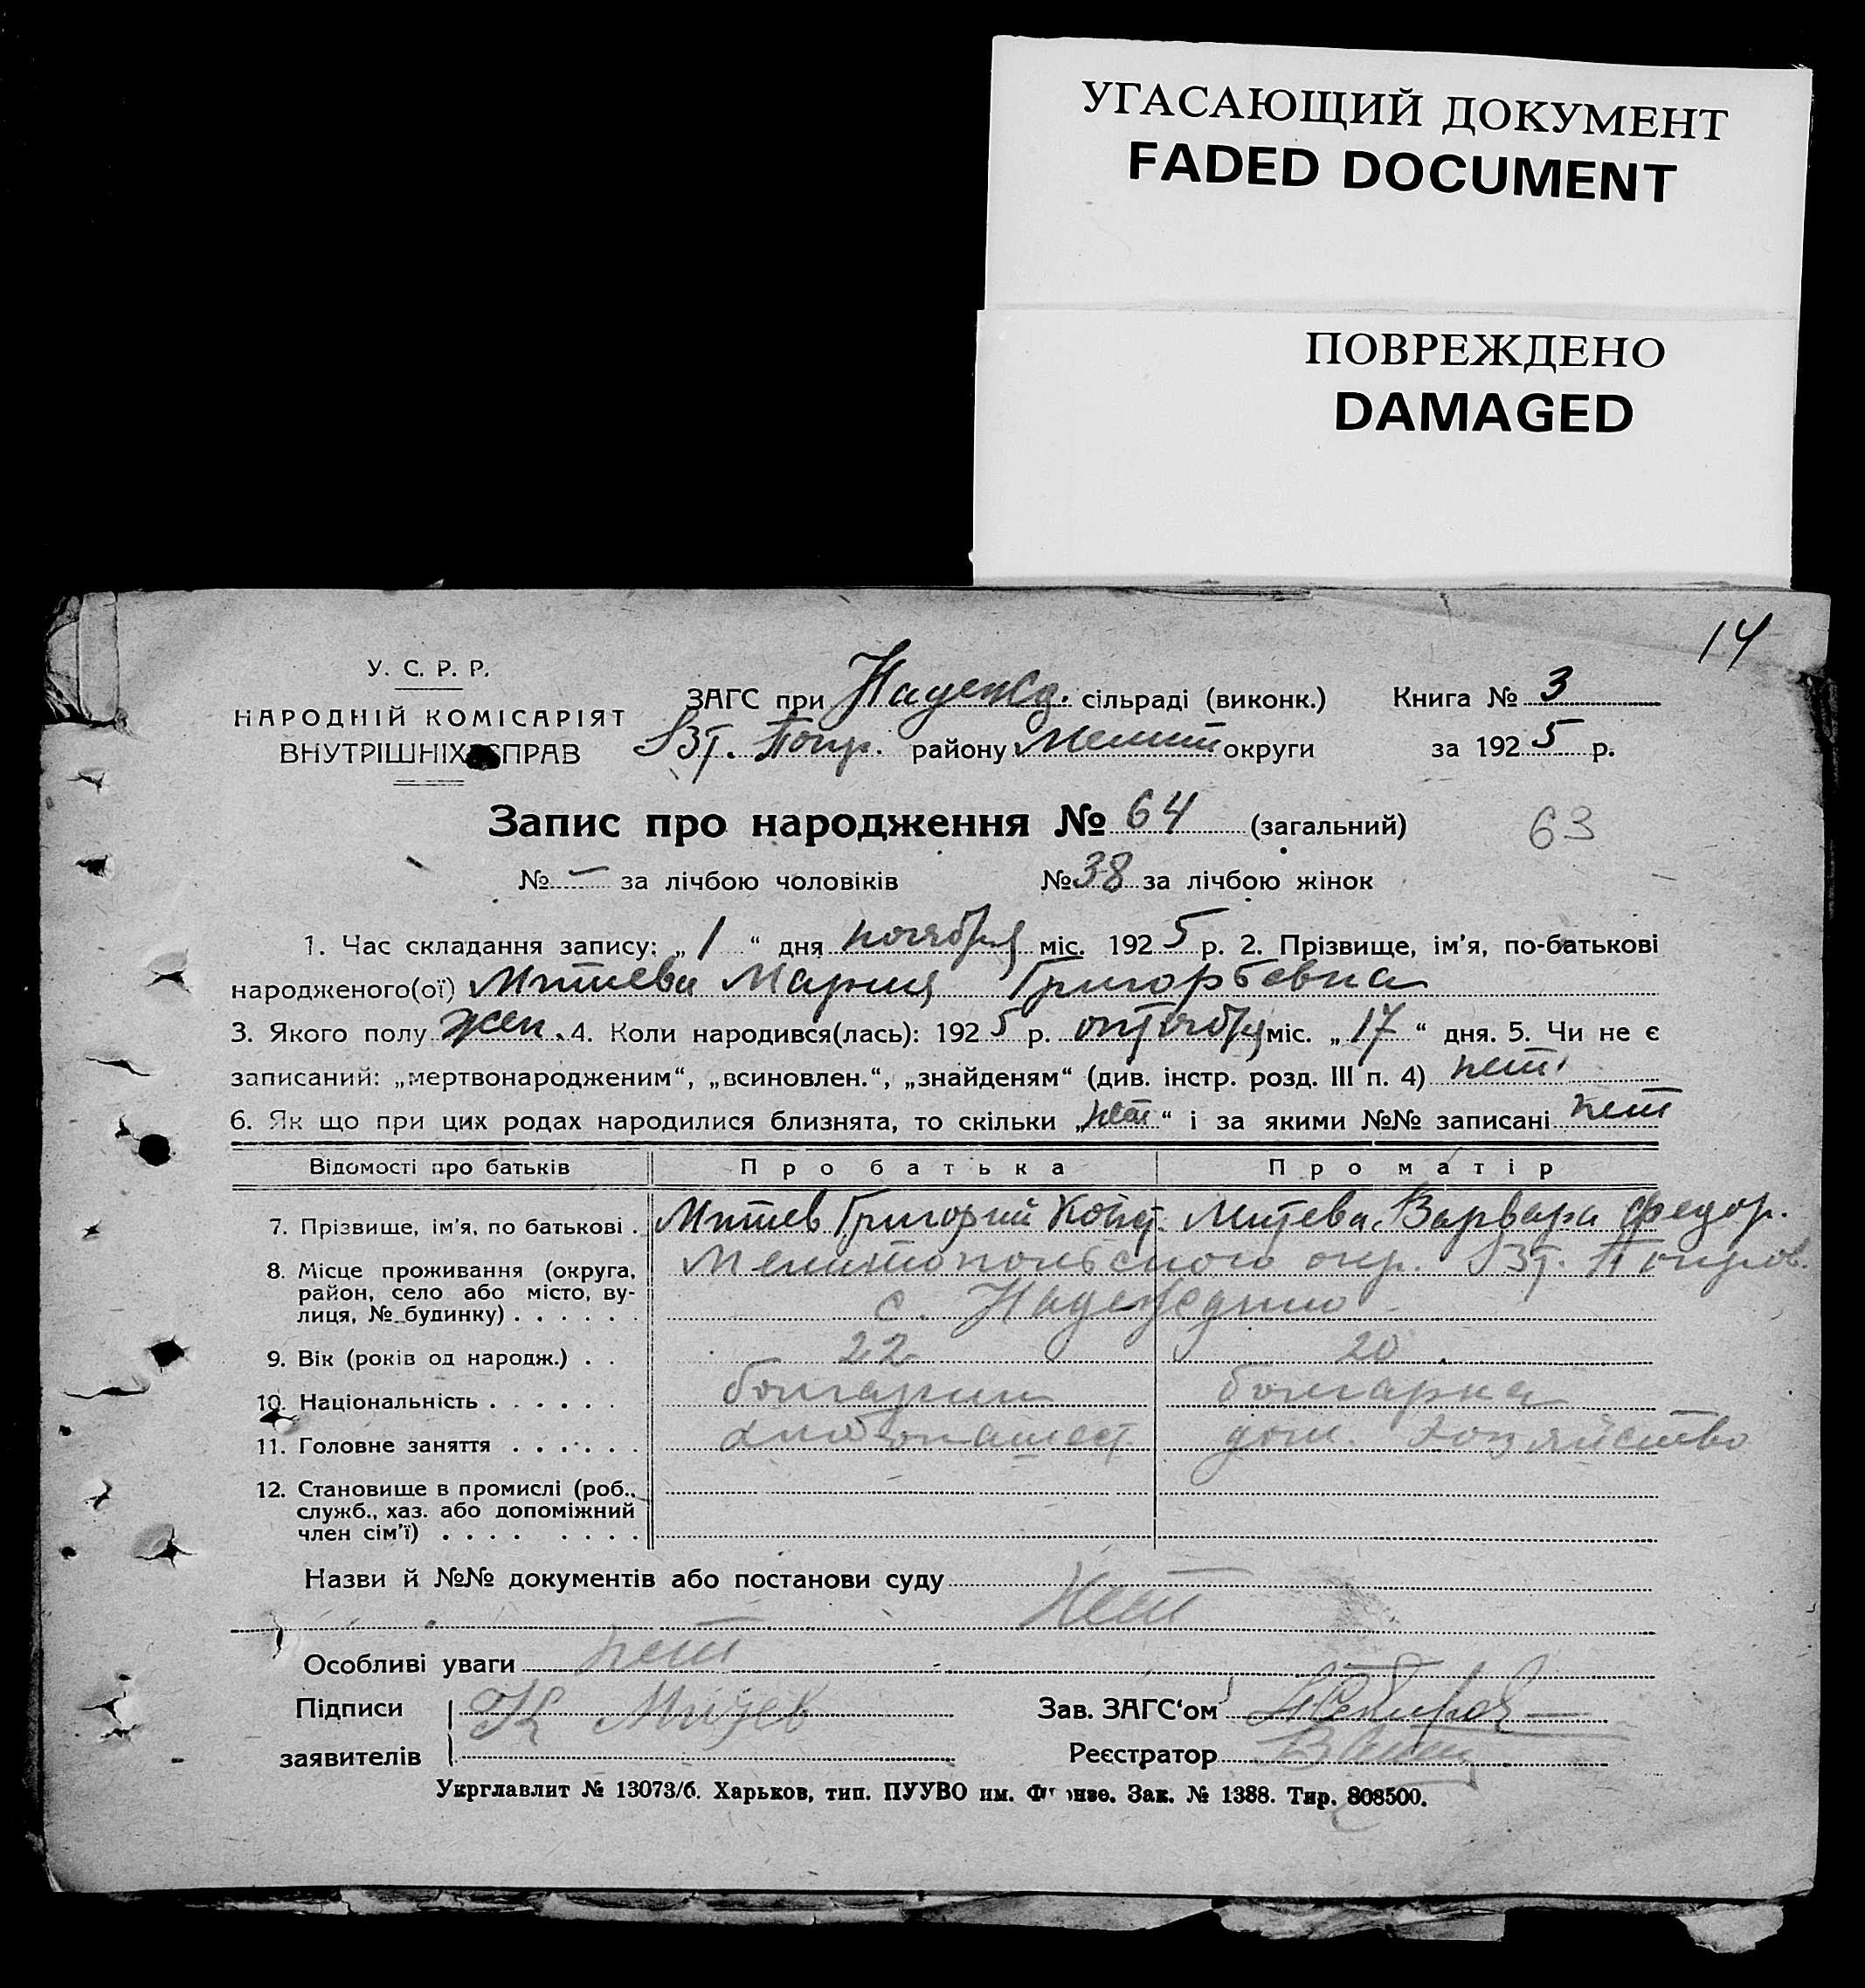 УГАСАЮЩИЙ ДОКУМЕНТ
FADED DOCUMENT
ПОВРЕЖДЕНО
DAMAGED
14
У. С. Р. Р.
НАРОДНІЙ КОМІСАРІЯТ
ВНУТРІШНІХ СПРАВ
ЗАГС при Надежд. сільраді (виконк.) Книга № 3
Вт. Покр. району Мелит округи за 1925 р.
Запис про народження № 64 (загальний) 63
№ — за лічбою чоловіків № 38 за лічбою жінок
1. Час складання запису: „1“ дня ноября міс. 1925 р. 2. Прізвище, ім’я, по-батькові
народженого(ої) Митева Мария Григорьевна
3. Якого полу жен. 4. Коли народився(лась): 1925 р. октября міс. „17“ дня. 5. Чи не є
записаний: „мертвонародженим“, „всиновлен.“, „знайденям“ (див. інстр. розд. III п. 4) нет
6. Як що при цих родах народилися близнята, то скільки „нет“ і за якими №№ записані нет
Відомості про батьків Про батька Про матір
7. Прізвище, ім’я, по батькові . Митев Григорий Конст. Митева Варвара Федор.
8. Місце проживання (округа, район, село або місто, вулиця, № будинку) . . . . . . Мелитопольского окр. Вт. Покров.
с. Надеждино
9. Вік (років од народж.) . . 22 20
10. Національність . . . . . . болгарин болгарка
11. Головне заняття . . . . . . хлебопашест. дом. хозяйство
12. Становище в промислі (роб., служб., хаз. або допоміжний член сім’ї) . . . . . . . .
Назви й №№ документів або постанови суду
нет
Особливі уваги нет
Підписи К Митев Зав. ЗАГС‘ом
заявителів Реєстратор
Укрглавлит № 13073/б. Харьков, тип. ПУУВО им. Фрунзе. Зак. № 1388. Тир. 808500.